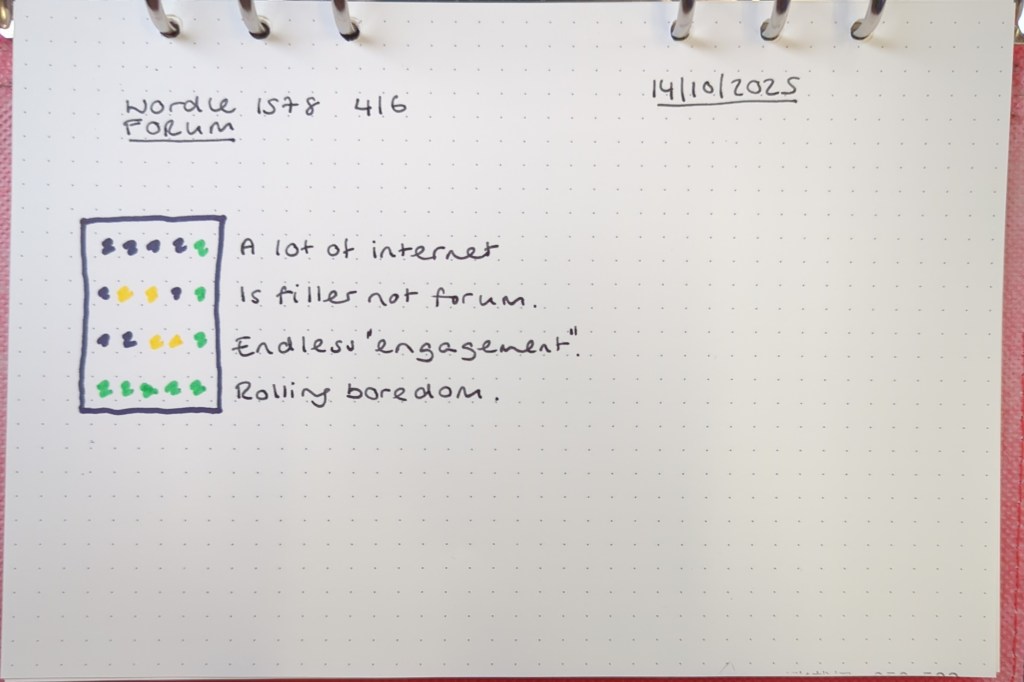 Wordle 1578 4/6
FORUM
14/10/2025
A lot of internet
Is filler not forum.
Endless "engagement".
Rolling boredom.